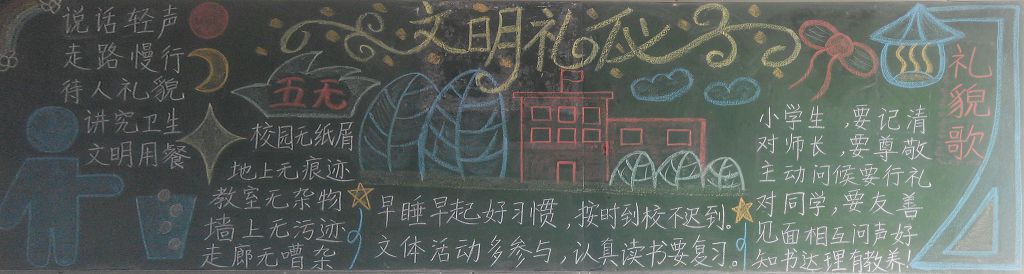 文明礼仪
说话轻声
走路慢行
待人礼貌
讲究卫生
文明用餐
五无
校园无纸屑
地上无痕迹
教室无杂物
墙上无污迹
走廊无嘈杂
早睡早起好习惯，按时到校不迟到。
文体活动多参与，认真读书要复习。
礼貌歌
小学生，要记清
对师长，要尊敬
主动问候要行礼
对同学，要友善
见面相互问声好
知书达理有教养！